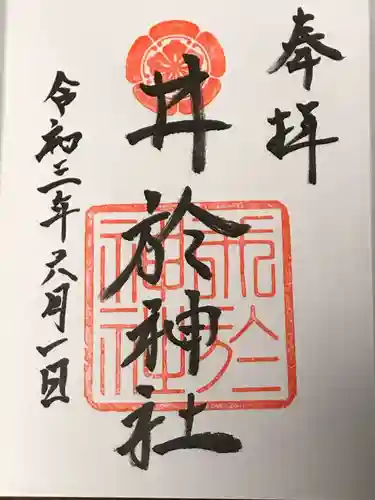 奉拝
井於神社
令和三年六月一日
井於神社